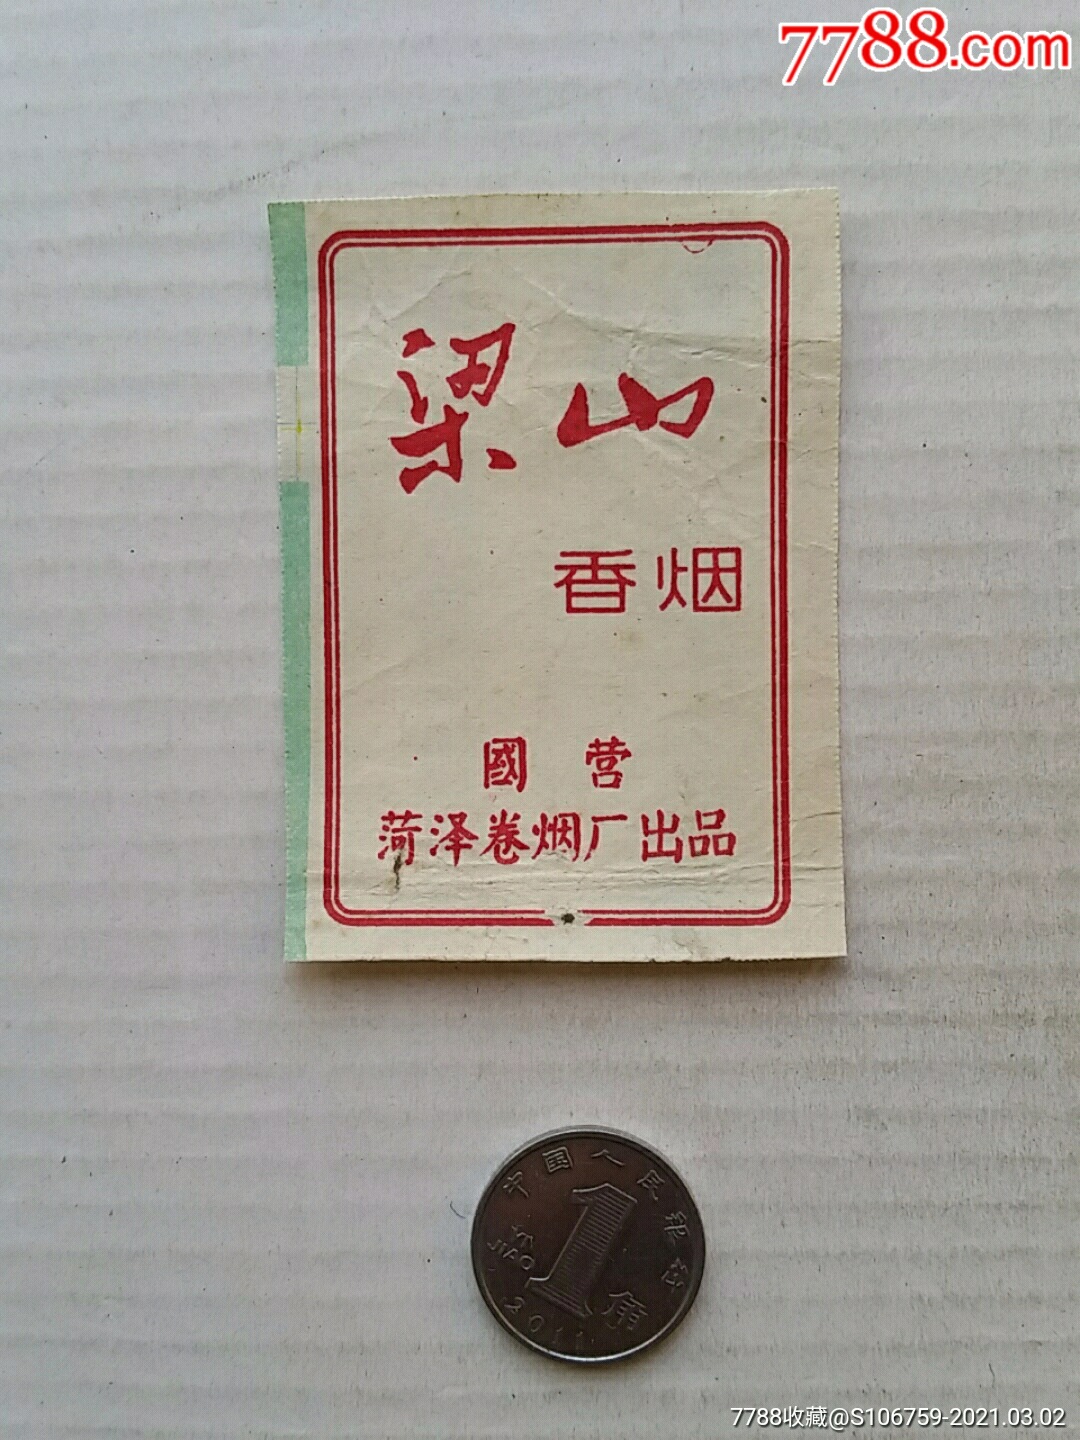 7788.com
梁山
香烟
國营
菏泽卷烟厂出品
中国人民银行
1角
YI JIAO
2011
7788收藏@S106759-2021.03.02